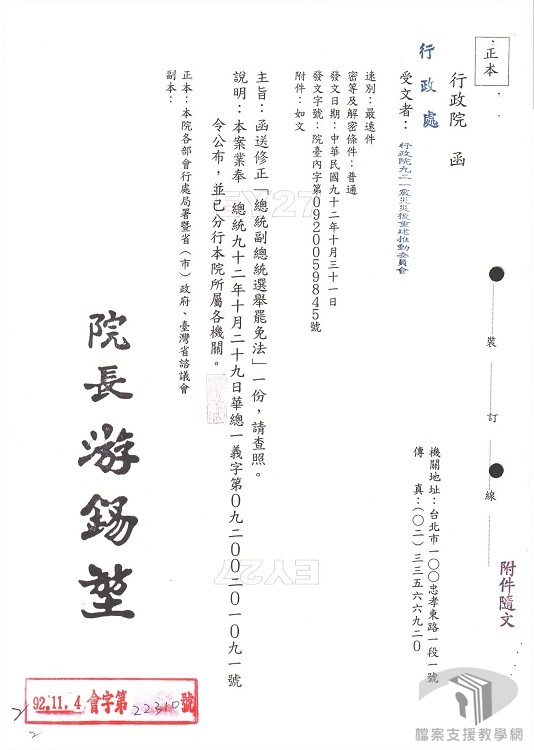 正本
行政院　函
行政處
受文者：行政院九二一震災災後重建推動委員會
機關地址：台北市一〇〇忠孝東路一段一號
傳　真：(〇二)三三五六六九二〇
速別：最速件
密等及解密條件：普通
發文日期：中華民國九十二年十月三十一日
發文字號：院臺內字第0920059845號
附件：如文
主旨：函送修正「總統副總統選舉罷免法」一份，請查照。
說明：本案業奉　總統九十二年十月二十九日華總一義字第0九二00二0一0九一號
令公布，並已分行本院所屬各機關。
正本：本院各部會行處局署暨省（市）政府、臺灣省諮議會
副本：
院長 游錫堃
裝
訂
線
附件隨文
EY27
EY27
92.11.4 會字第22310號
檔案支援教學網